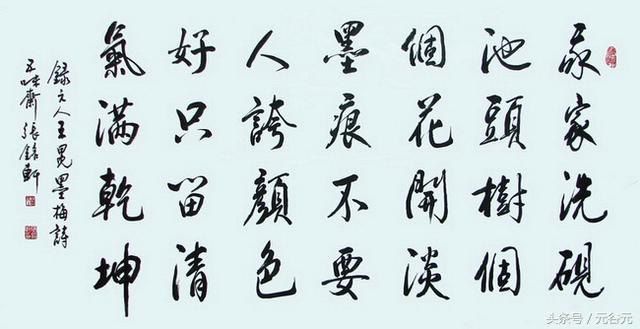 我家洗硯
池頭樹個
個花開淡
墨痕不要
人誇顏色
好只留清
氣滿乾坤
録元人王冕墨梅詩
五味齋張銘軒
头条号 / 元谷元